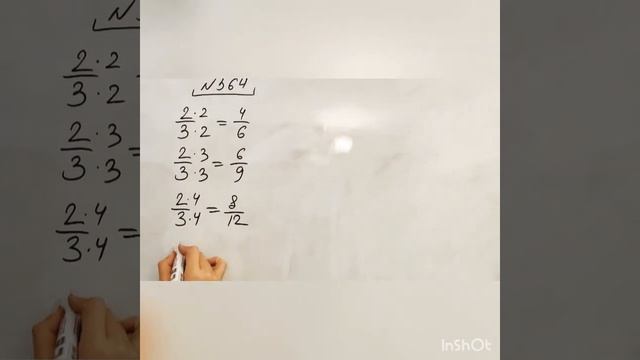 N564
2·2/3·2 = 4/6
2·3/3·3 = 6/9
2·4/3·4 = 8/12
InShOt